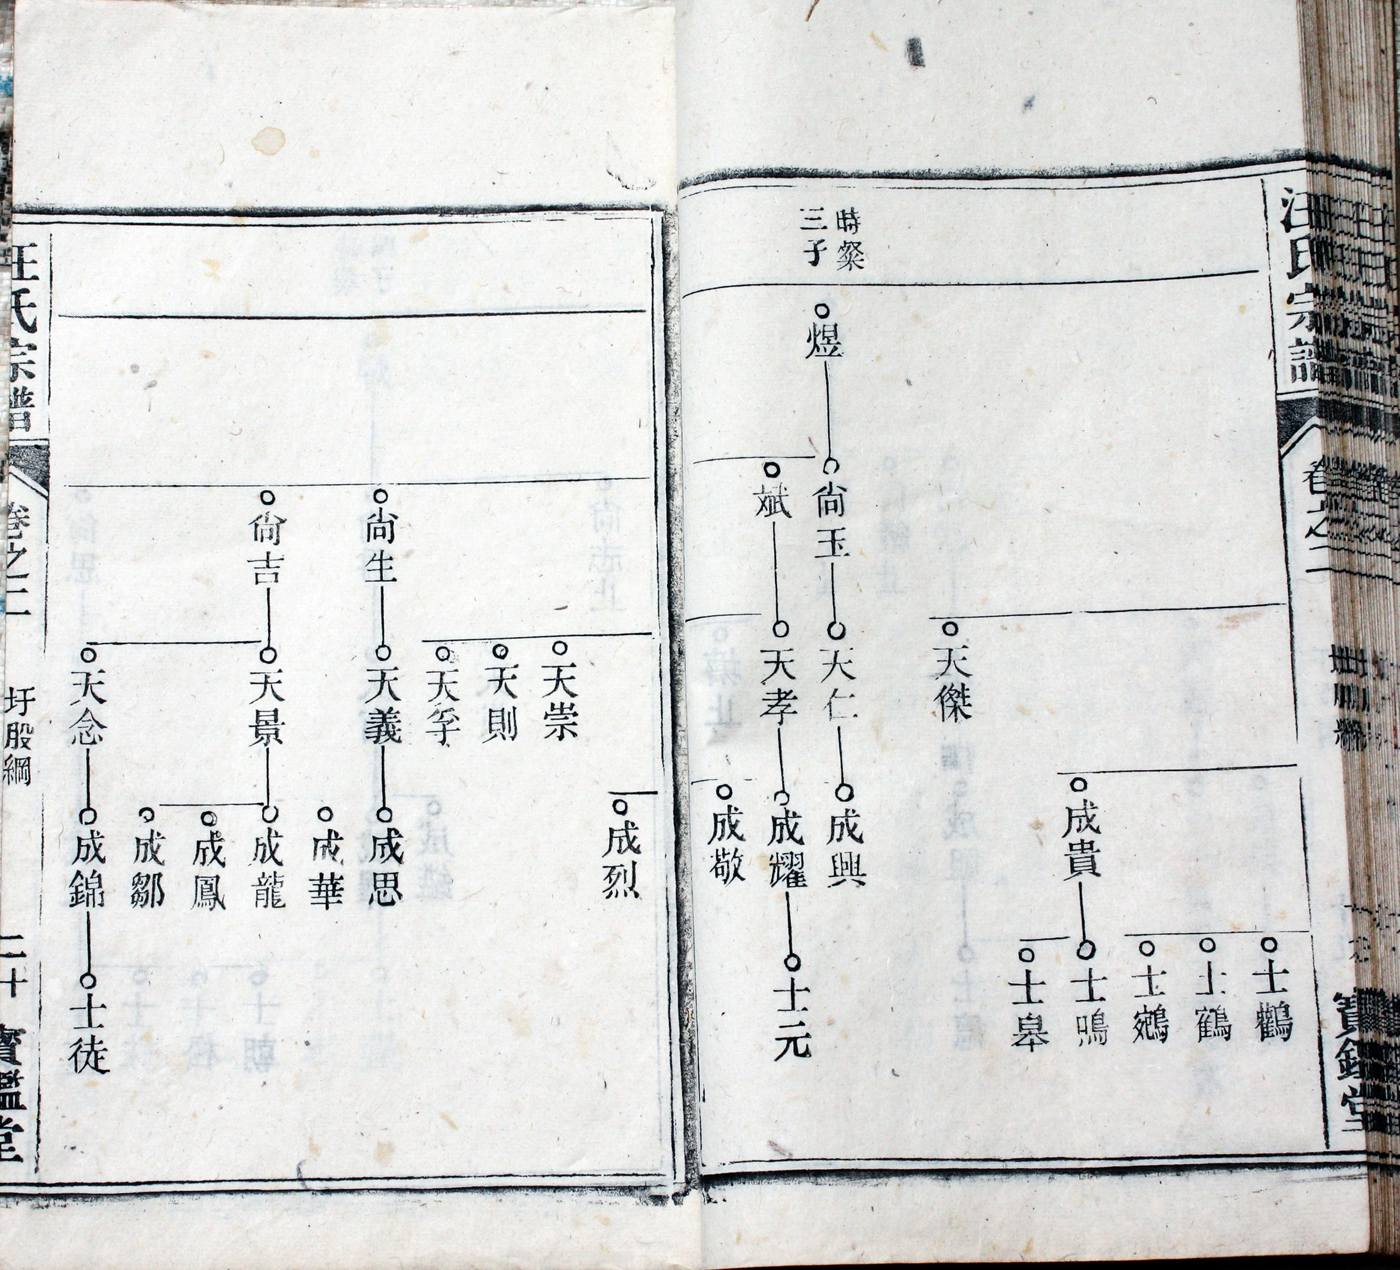 汪氏宗譜
卷之二
寶鑑堂
時粲
三子
煜
尚玉
斌
天傑
天仁
天孝
成貴
成興
成耀
成敬
士鸛
士鶴
士鵷
士鳴
士皋
士元
尚生
尚吉
天崇
天則
天孚
天義
天景
天念
成烈
成思
成華
成龍
成鳳
成鄒
成錦
士徒
汪氏宗譜
卷之二
圩股綱
二十
寶鑑堂